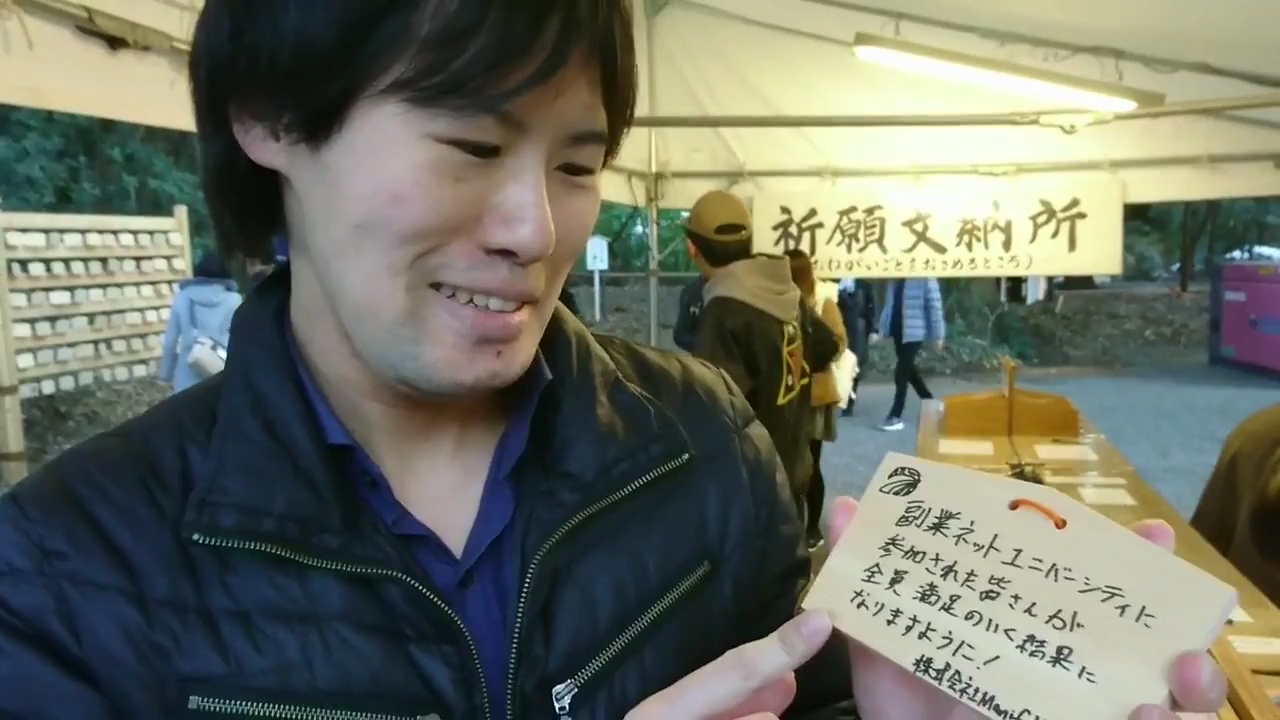 祈願文納所
(おねがいごとをおさめるところ)
副業ネットユニバーシティに
参加された皆さんが
全員満足のいく結果に
なりますように!
株式会社